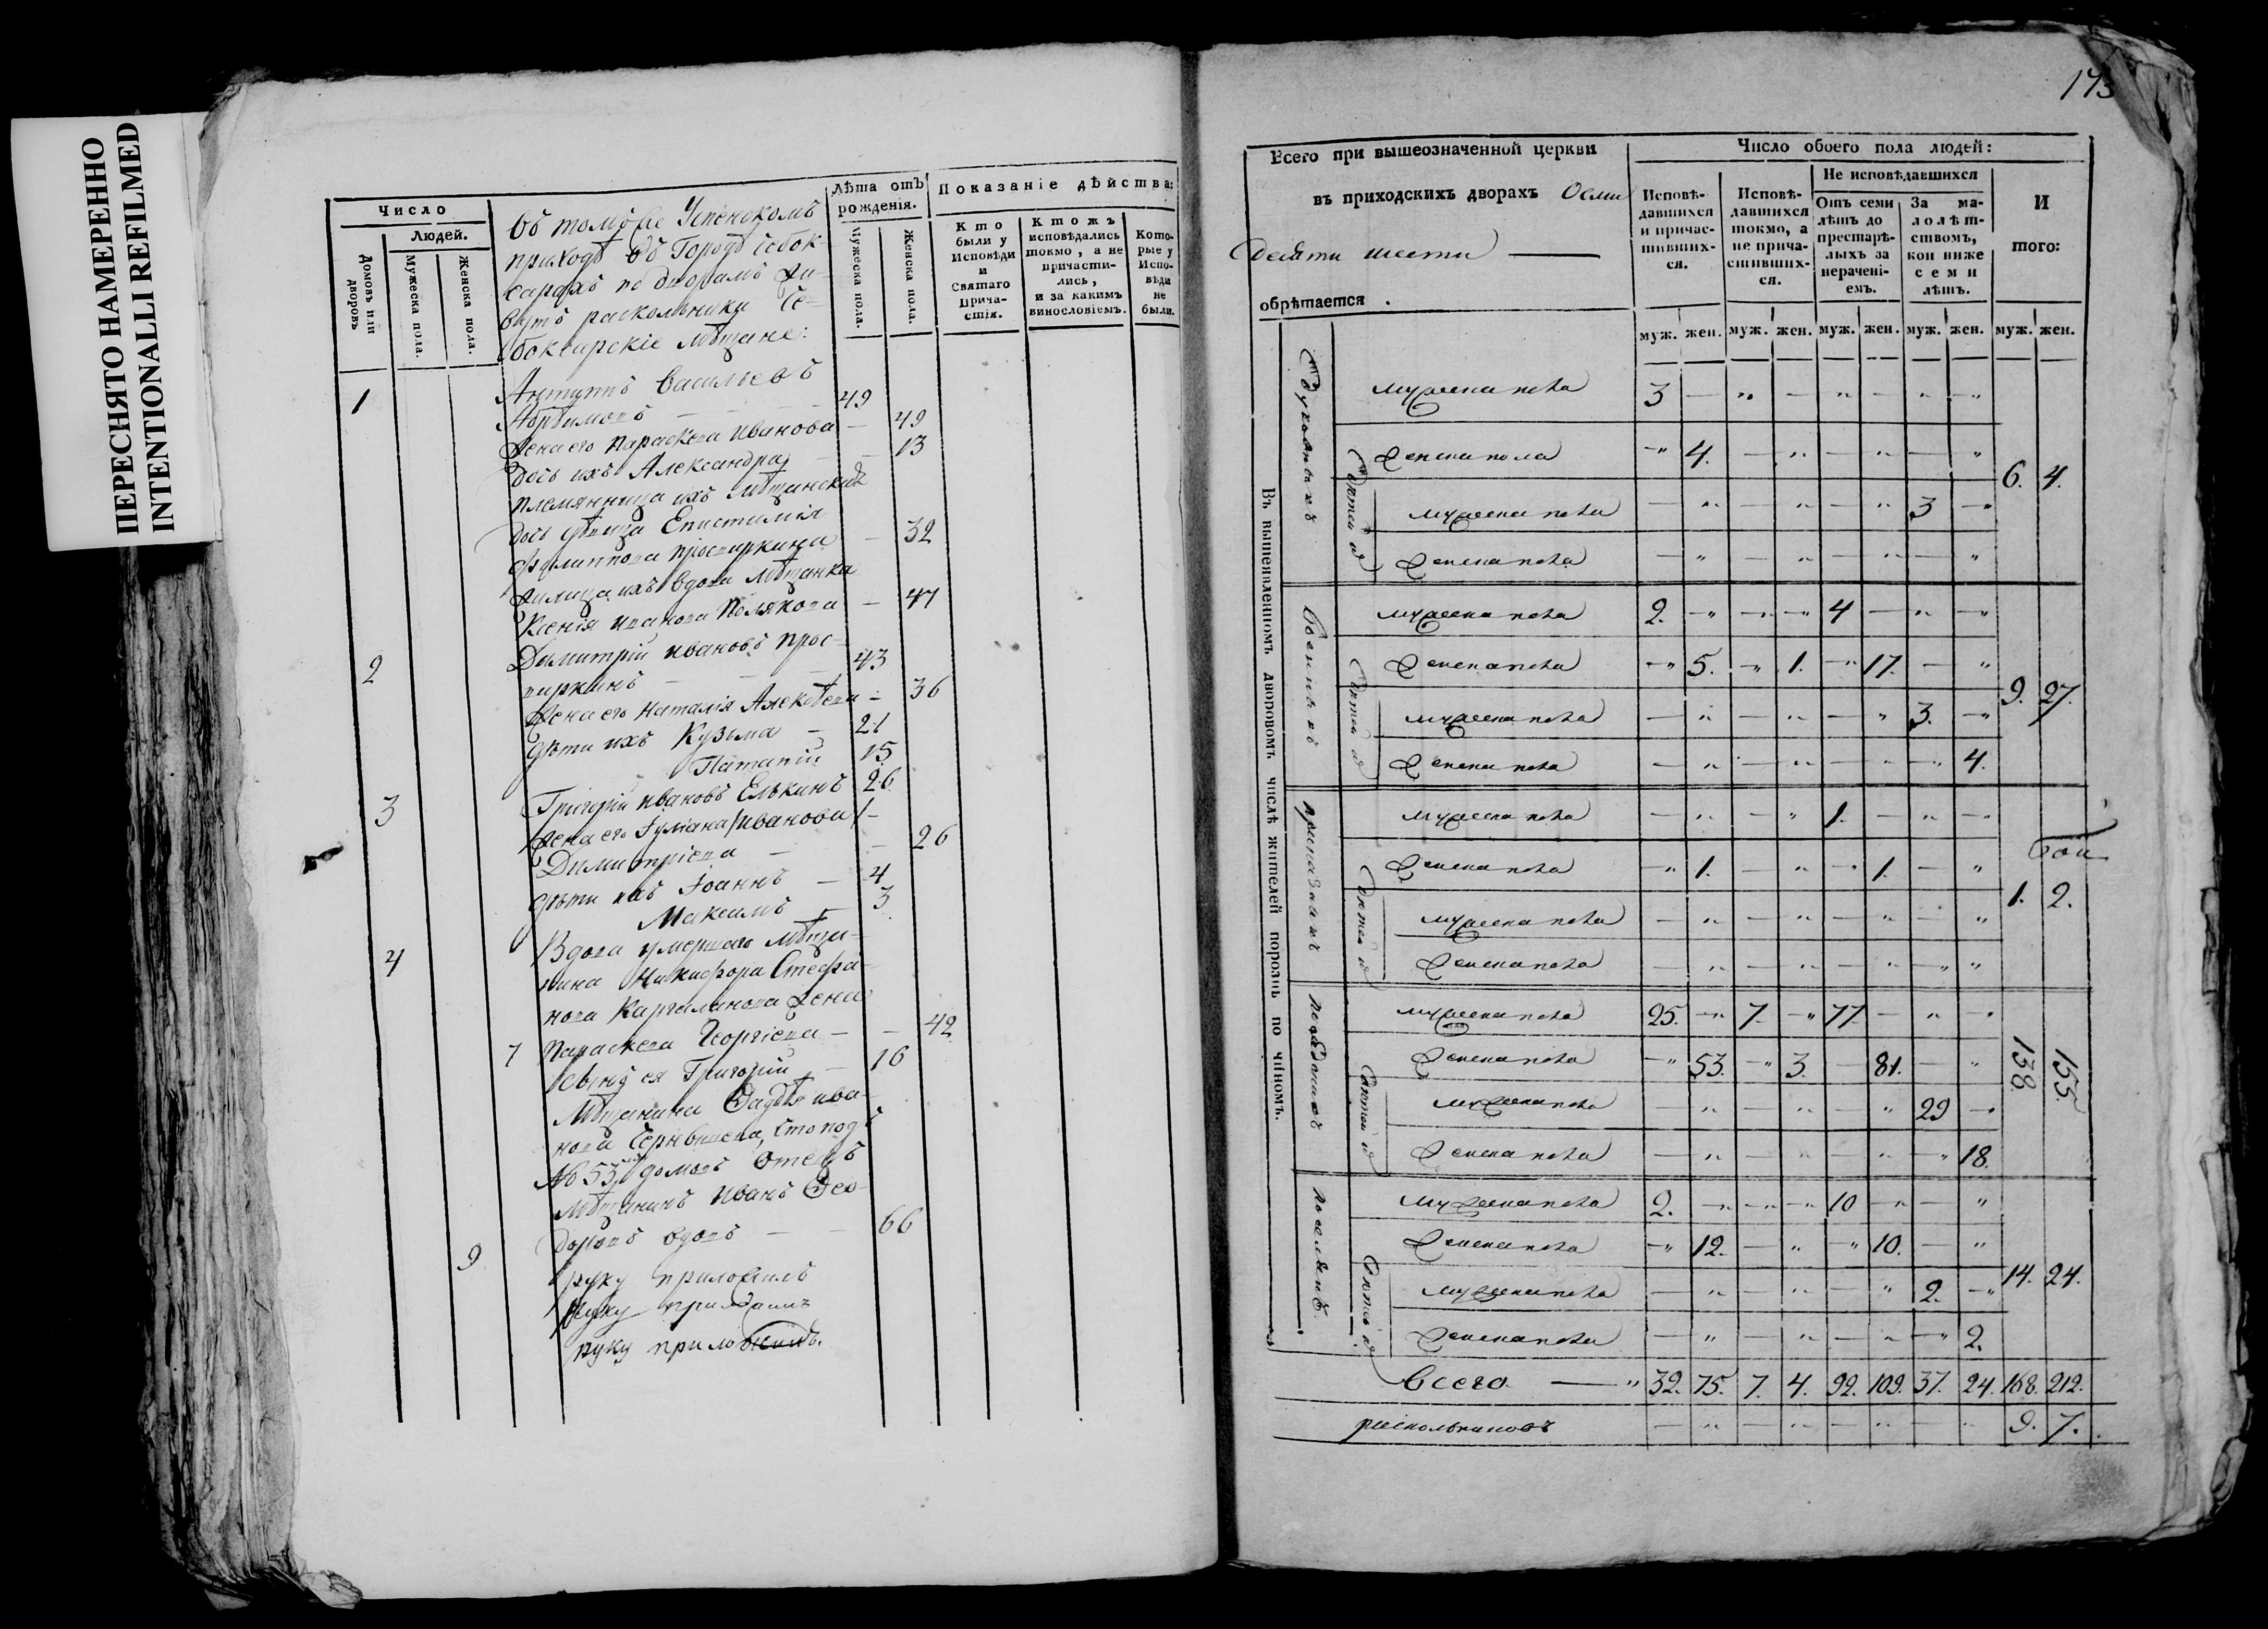 ПЕРЕСНЯТО НАМЕРЕННО
INTENTIONALLI REFILMED
Число
Людей.
Домовъ или дворовъ
Мужеска пола.
Женска пола.
Въ томъ же Успенскомъ
приходѣ въ Городѣ Чебок-
сарахъ по дворамъ жи-
вутъ раскольники Че-
боксарскіе Мѣщане:
Лѣта отъ рожденія.
Мужеска пола.
Женска пола.
Показаніе дѣйства:
Кто были у Исповѣди и Святаго Прича-стія.
Ктожъ исповѣдались токмо, а не причасти-лись, и за какимъ винословіемъ.
Кото-рые у Испо-вѣди не были.
1 Антипъ Васильевъ
49
Жена его Параскева Иванова — 49
Дочь ихъ Александра — 13
Племянница ихъ Мѣщанская
дочь дѣвица Епистимія
Филиппова — 32
вдова Мѣщанка
Ксенія Иванова Полякова — 47
2 Димитрій Ивановъ Прос-
виркинъ — 43
Жена его Наталія Алексѣева — 36
Дѣти ихъ Кузьма — 21
Патапій 15
3 Григорій Ивановъ Елькинъ 26
Жена его Іуліана /Иванова/ —
Димитріева — 26
Дѣти ихъ Іоаннъ — 4
Максимъ — 3
4 Вдова умершаго Мѣща-
нина Никифора Стефа-
нова жена
7 Параскева Георгіева — 42
Сынъ ея Григорій — 16
Мѣщанина Фадѣя Ива-
нова
№ 53 домовъ Отецъ
Мѣщанинъ Иванъ Ѳео-
доровъ вдовъ — 66
9 руку приложилъ
руку приложилъ
руку приложилъ.
173
Всего при вышеозначенной церкви
въ приходскихъ дворахъ Осми
десяти шести —
обрѣтается .
Число обоего пола людей:
Исповѣ-давшихся и причас-тивших-ся.
Исповѣ-давшихся токмо, а не прича-стивших-ся.
Не исповѣдавшихся
Отъ семи лѣтъ до престарѣ-лыхъ за нерачені-емъ.
За ма-лолѣт-ствомъ, кои ниже семи лѣтъ.
И того:
муж. жен. муж. жен. муж. жен. муж. жен. муж. жен.
Въ вышеявленномъ дворовомъ числѣ жителей порознь по чиномъ.
Духовныхъ
мужеска пола 3
женска пола 4.
Дѣтей ихъ
мужеска пола 3
женска пола
6. 4.
Военныхъ
мужеска пола 2. 4
женска пола 5. 1. 17.
Дѣтей ихъ
мужеска пола 3.
женска пола 4.
9. 27.
приказныхъ
мужеска пола 1.
женска пола 1. 1.
Дѣтей ихъ
мужеска пола
женска пола
1. 2.
мужеска пола 25. 7. 77.
женска пола 53. 3. 81.
мужеска пола 29
женска пола 18.
138. 155.
поселянъ.
мужеска пола 2. 10
женска пола 12. 10.
мужеска пола 2.
женска пола 2.
14. 24.
Всего — 32. 75. 7. 4. 92. 109. 37. 24. 168. 212.
раскольниковъ 9. 7.